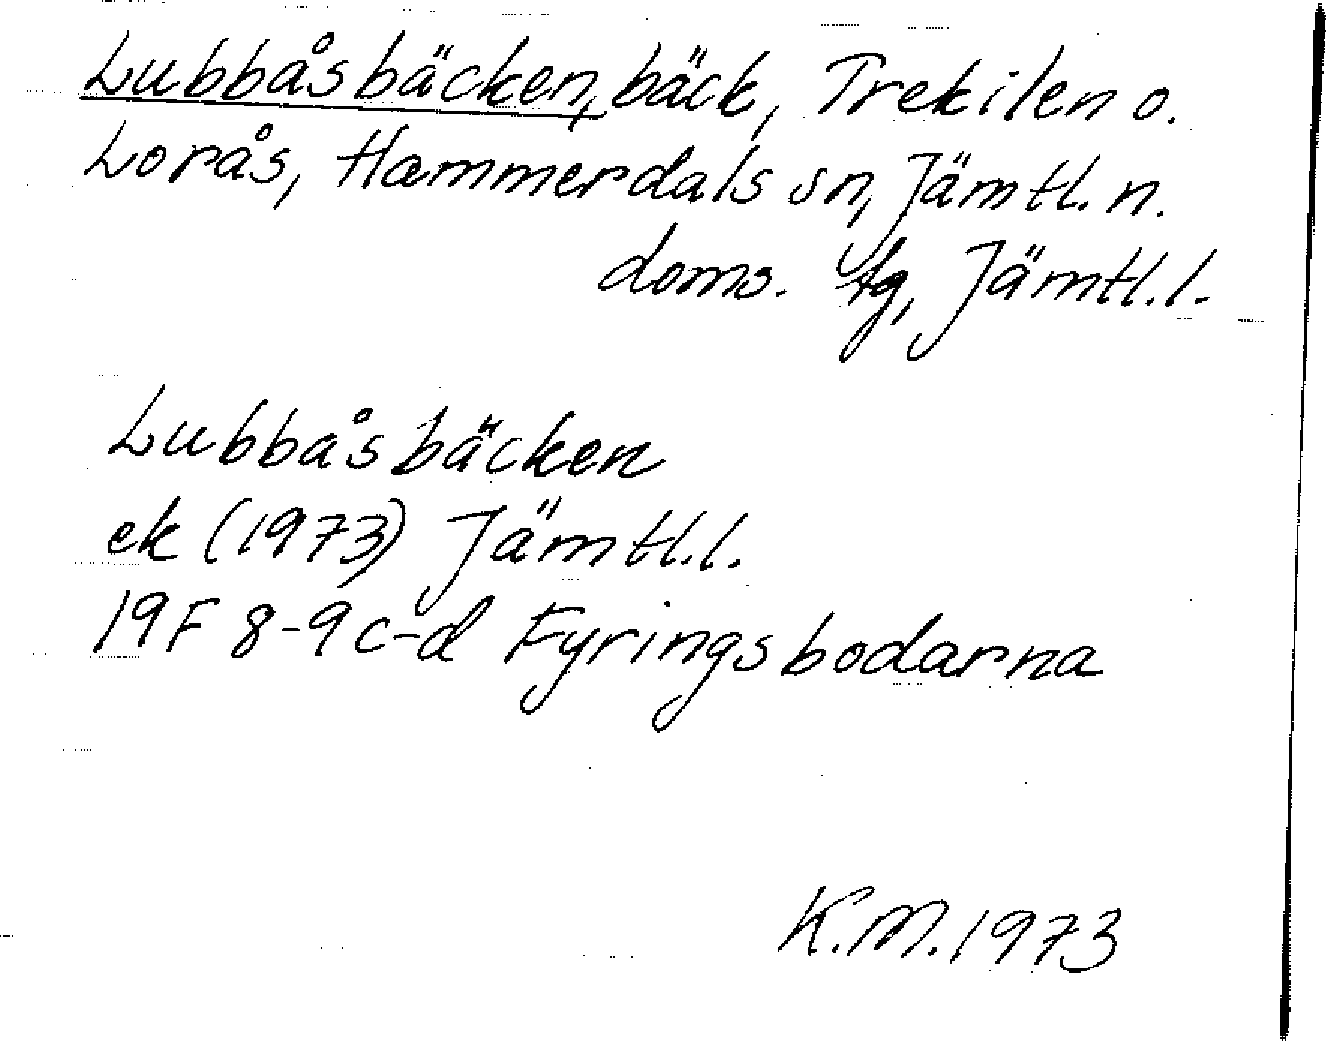 Lubbåsbäcken, bäck, Trekilen o.
Lorås, Hammerdals sn, Jämtl. n.
doms. tg, Jämtl. l.
Lubbåsbäcken
ek (1973) Jämtl. l.
19F 8-9c-d Fyringsbodarna
K.M. 1973